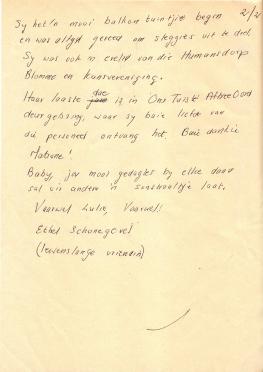 Sy het 'n mooi balkon tuintjie begin 2/21
en was altyd gereed om steggies uit te deel.
Sy was ook 'n erelid van die Humansdorp
Blomme en Kunsvereniging.
Haar laaste dae is in Ons Tuiste Aftree Oord
deurgebring, waar sy baie liefde van
die personeel ontvang het. Baie dankie
Matrone!
Baby, jou mooi gedagtes by elke daar
sal vir andere 'n sonstraaltjie laat.
Vaarwel Lulie, Vaarwel!
Ethel Schonegevel
(lewenslange vriendin)